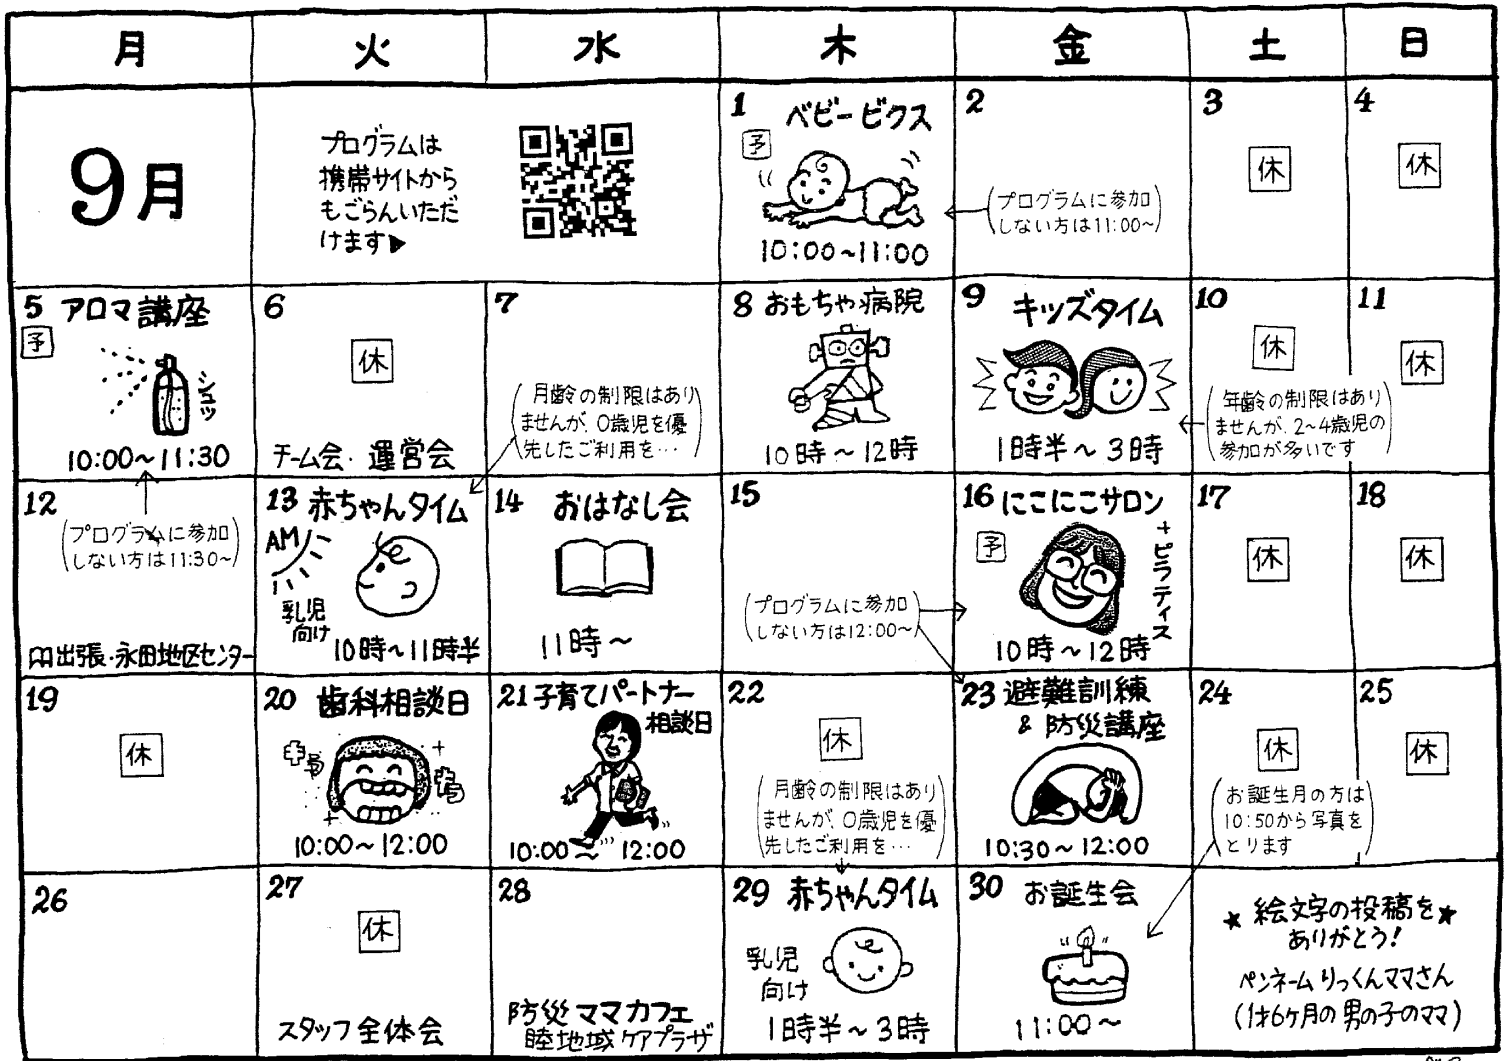 月 火 水 木 金 土 日
9月
プログラムは
携帯サイトから
もごらんいただ
けます▶
1 ベビービクス
予
10:00~11:00
2
(プログラムに参加
しない方は11:00~)
3
休
4
休
5 アロマ講座
予
シュッ
10:00~11:30
6
休
チーム会・運営会
7
(月齢の制限はあり
ませんが、0歳児を優
先したご利用を…)
8 おもちゃ病院
10時~12時
9 キッズタイム
1時半~3時
10
休
(年齢の制限はあり
ませんが、2~4歳児の
参加が多いです)
11
休
12
(プログラムに参加
しない方は11:30~)
出張・永田地区センター
13 赤ちゃんタイム
AM
乳児
向け
10時~11時半
14 おはなし会
11時~
15
(プログラムに参加
しない方は12:00~)
16 にこにこサロン
予
+ピラティス
10時~12時
17
休
18
休
19
休
20 歯科相談日
10:00~12:00
21 子育てパートナー
相談日
10:00~12:00
22
休
(月齢の制限はあり
ませんが、0歳児を優
先したご利用を…)
23 避難訓練
& 防災講座
10:30~12:00
24
休
(お誕生月の方は
10:50から写真を
とります)
25
休
26
27
休
スタッフ全体会
28
防災ママカフェ
睦地域ケアプラザ
29 赤ちゃんタイム
乳児
向け
1時半~3時
30 お誕生会
11:00~
★絵文字の投稿を★
ありがとう!
ペンネームりっくんママさん
(1才6ヶ月の男の子のママ)